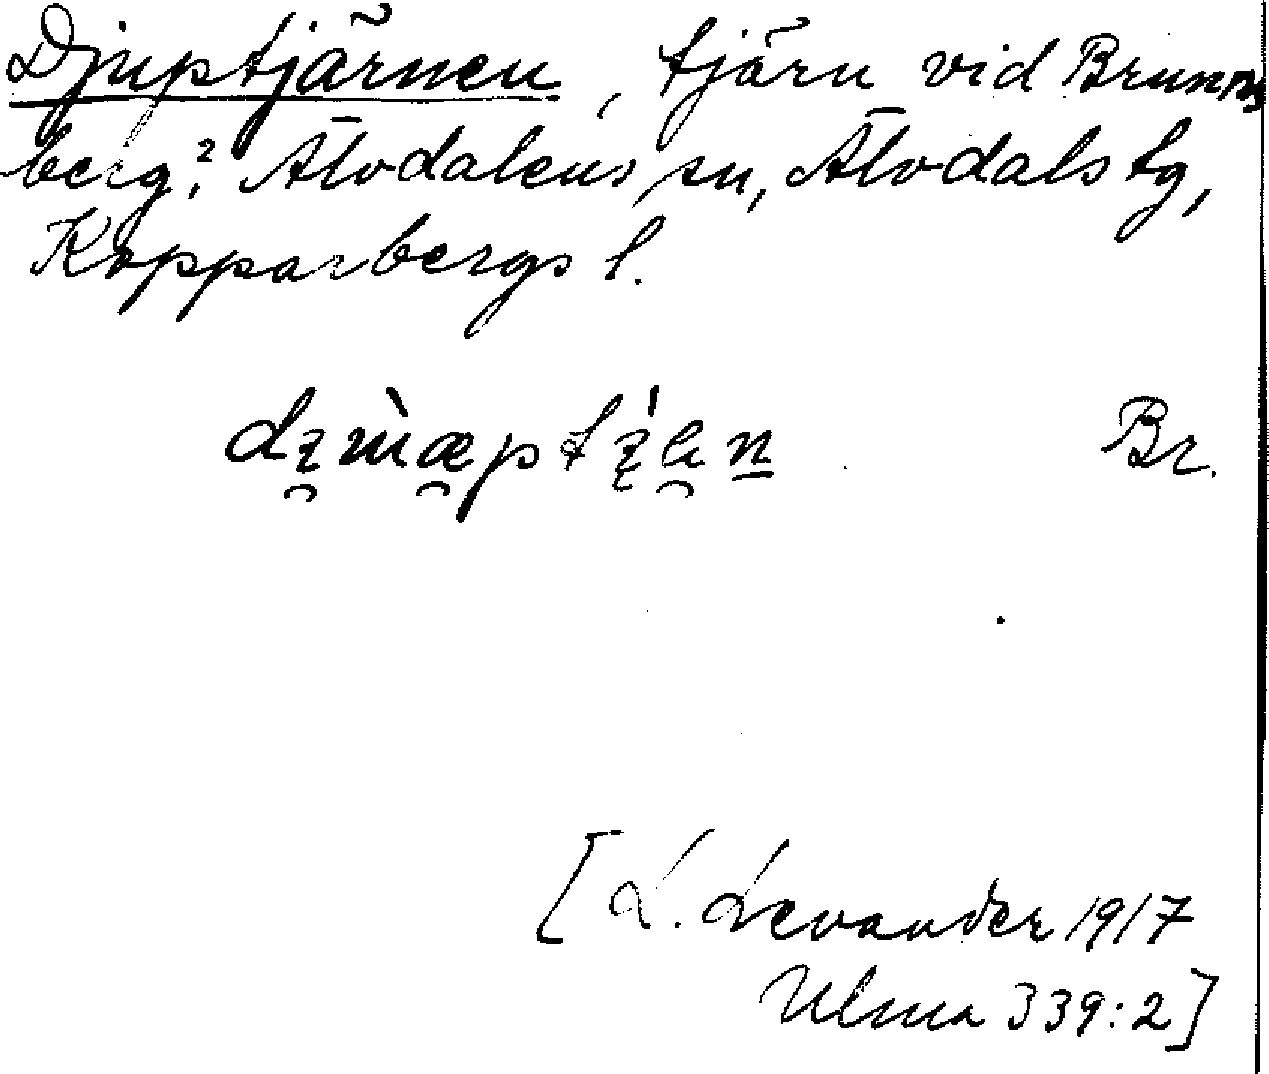 Djuptjärnen, tjärn vid Brunns
berg,? Älvdalens sn, Älvdals tg,
Kopparbergs l.
Br.
[L. Levander 1917
Ulma 339:2]